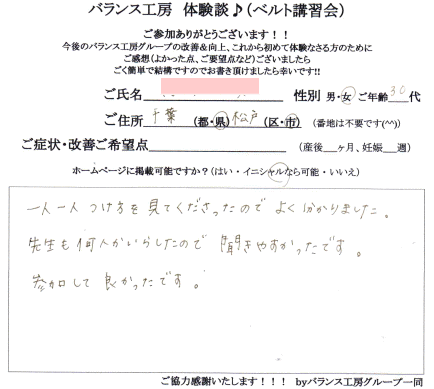 バランス工房 体験談♪(ベルト講習会)
ご参加ありがとうございます!!
今後のバランス工房グループの改善&向上、これから初めて体験なさる方のために
ご感想(よかった点、ご要望点など)ございましたら
ごく簡単で結構ですのでお書き頂けましたら幸いです!!
ご氏名 性別 男・女 ご年齢30代
ご住所 千葉(都・県)松戸(区・市) (番地は不要です(^^))
ご症状・改善ご希望点 (産後__ヶ月、妊娠__週)
ホームページに掲載可能ですか?(はい・イニシャルなら可能・いいえ)
一人一人つけ方を見てくださったのでよく分かりました。
先生も何人かいらしたので聞きやすかったです。
参加して良かったです。
ご協力感謝いたします!!! byバランス工房グループ一同